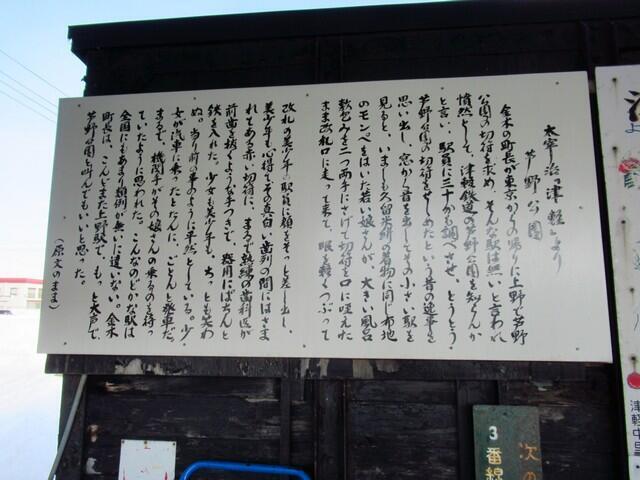 太宰治「津軽」より
芦野公園
金木の町長が東京からの帰りに上野で芦野
公園の切符を求め、そんな駅は無いと言われ
憤然として、津軽鉄道の芦野公園を知らんか
と言い、駅員に三十分も調べさせ、とうとう
芦野公園の切符をせしめたという昔の逸事を
思い出し、窓から首を出してその小さい駅を
見ると、いましも久留米絣の着物に同じ布地
のモンペをはいた若い娘さんが、大きい風呂
敷包みを二つ両手にさげて切符を口に咥えた
まま改札口に走って来て、眼を軽くつぶって
改札の美少年の駅員に顔をそっと差し出し、
美少年も心得て、その真白い歯列の間にはさま
れてある赤い切符に、まるで熟練の歯科医が
前歯を抜くような手つきで、器用にぱちんと
鋏を入れた。少女も美少年も、ちっとも笑わ
ぬ。当り前の事のように平然としている。少
女が汽車に乗ったとたんに、ごとんと発車だ。
まるで、機関手がその娘さんの乗るのを待っ
ていたように思われた。こんなのどかな駅は
全国にもあまり類例が無いに違いない。金木
町長は、こんどまた上野駅で、もっと大声で、
芦野公園と叫んでもいいと思った。
(原文のまま)
次の
3番線
津軽中里